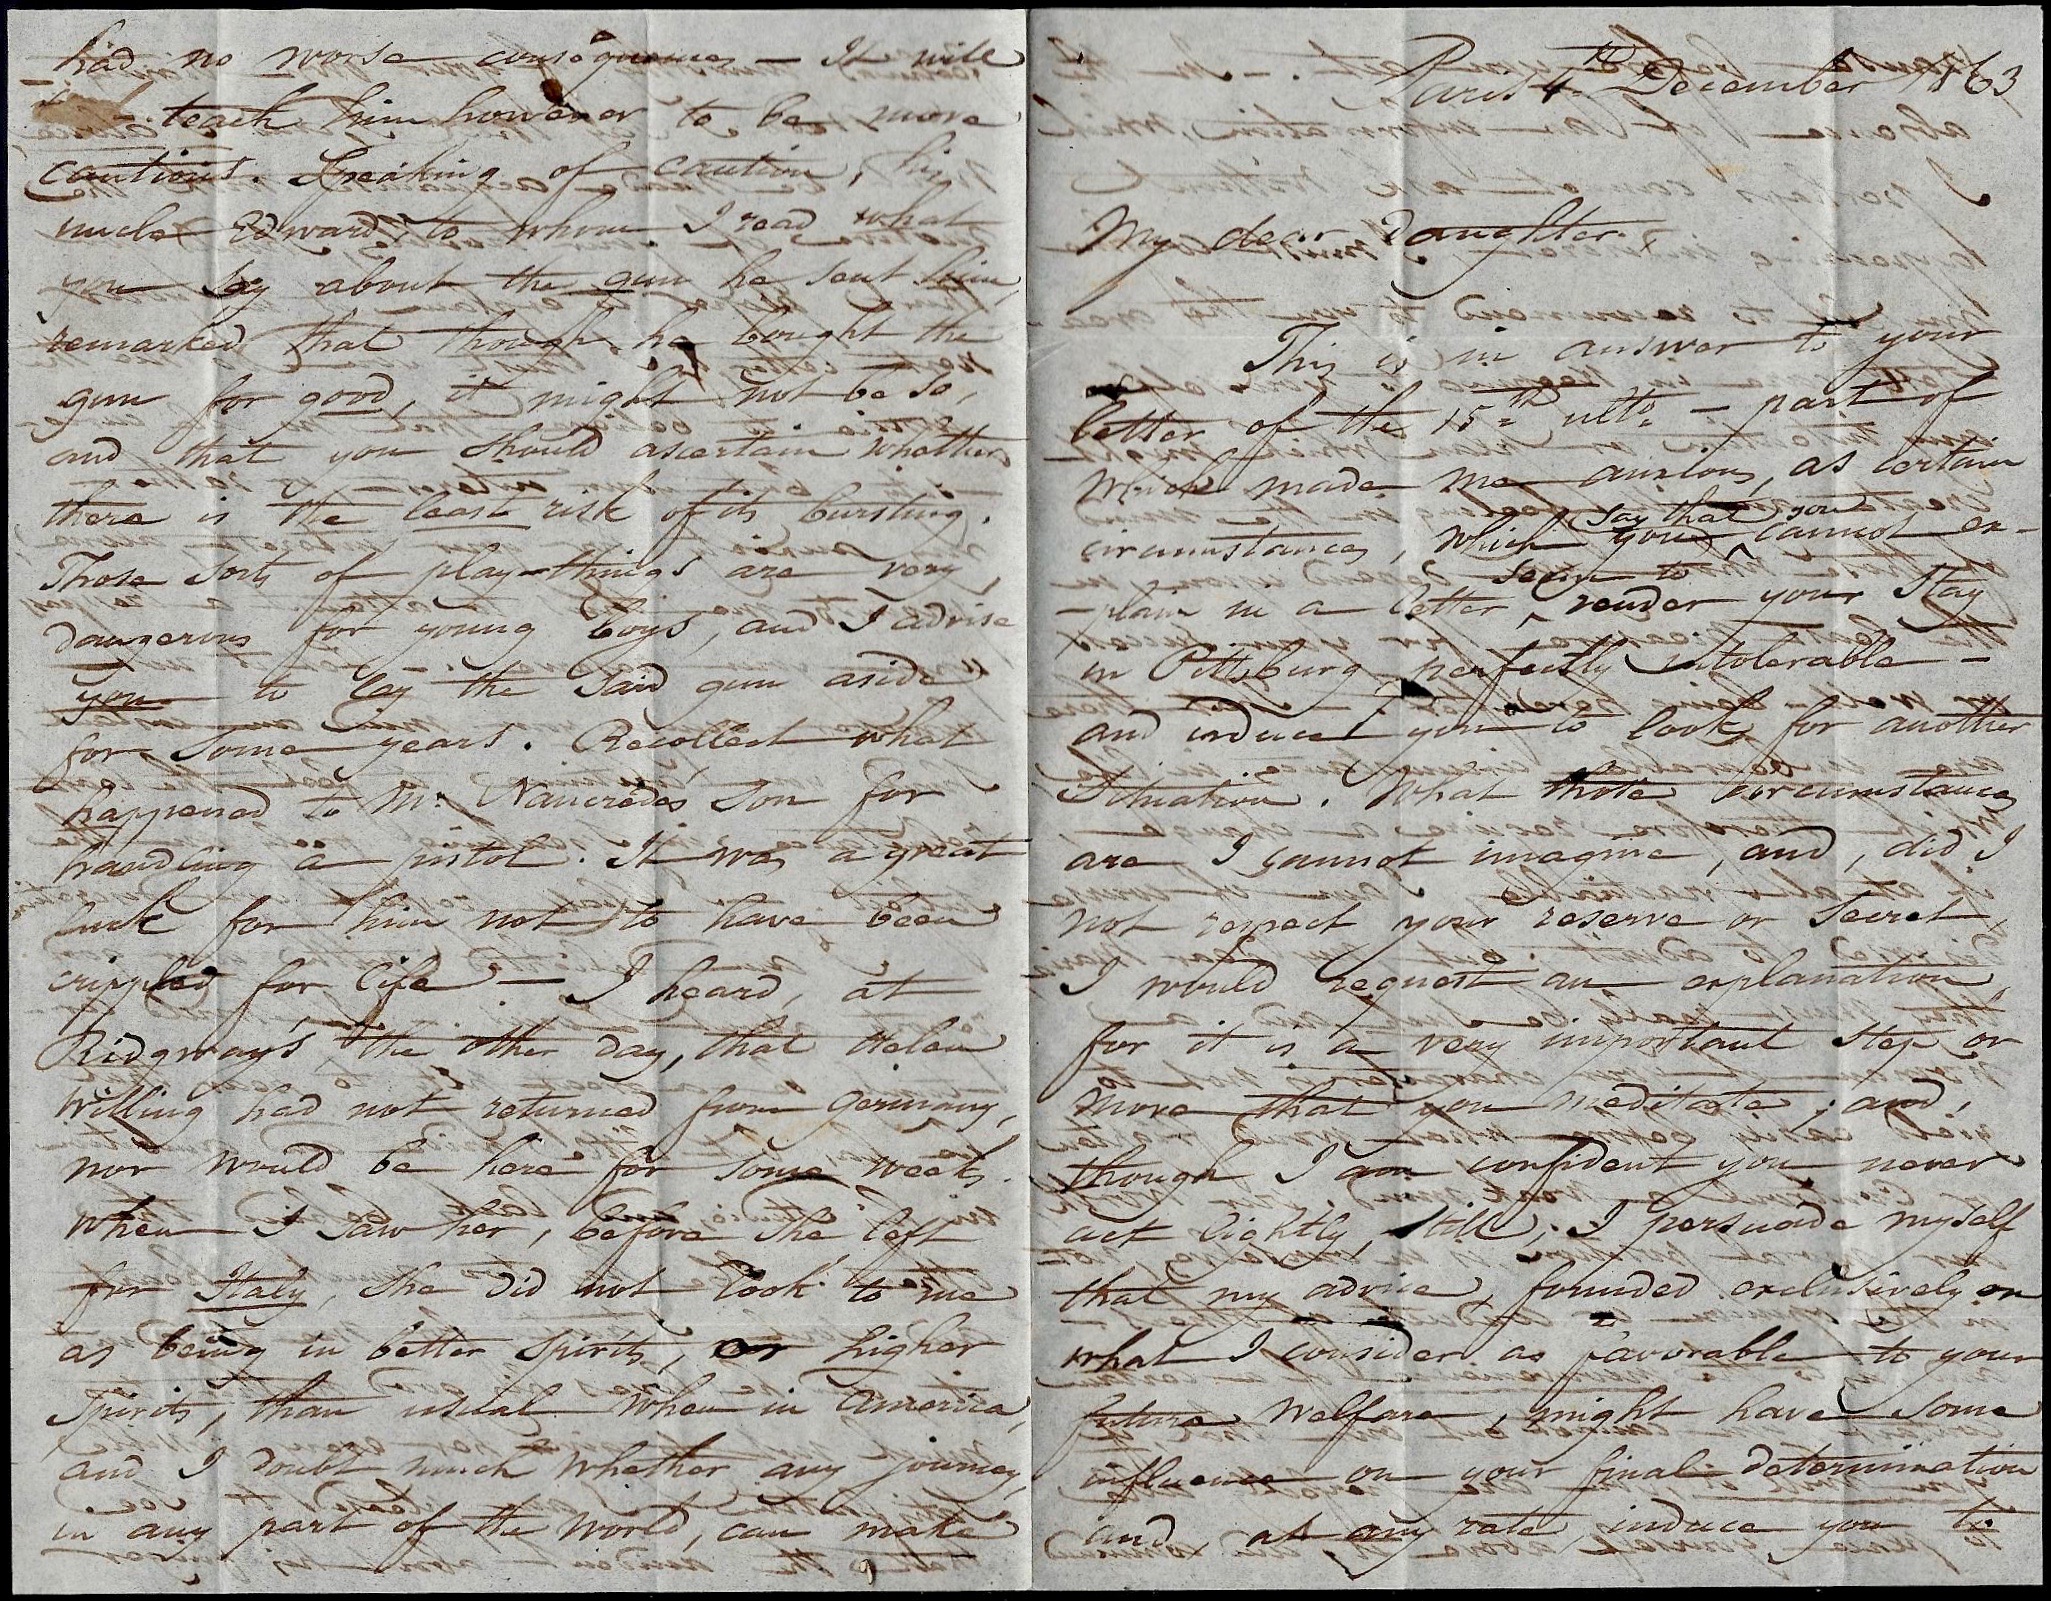 Paris 4th December 1863
My dear Daughter,
This is in answer to your
letter of the 15th ulto — part of
which made me anxious, as certain
circumstances, which you say that you cannot ex-
-plain in a letter, seem to render your stay
in Pittsburg perfectly intolerable —
and induce you to look for another
situation. What those circumstances
are I cannot imagine, and, did I
not respect your reserve or secret,
I would request an explanation,
for it is a very important step or
move that you meditate; and,
though I am confident you never
act lightly, still, I persuade myself
that my advice, founded exclusively on
what I consider as favorable to your
future welfare, might have some
influence on your final determination
and, at any rate, induce you to
had no worse consequences — It will
teach him however to be more
cautious. Speaking of caution, his
uncle Edward, to whom I read what
you say about the gun he sent him,
remarked that though he bought the
gun for good, it might not be so,
and that you should ascertain whether
there is the least risk of its bursting.
Those sorts of play-things are very
dangerous for young boys, and I advise
you to lay the said gun aside
for some years. Recollect what
happened to Mr. Nancrede's son for
handling a pistol. It was a great
luck for him not to have been
crippled for life — I heard, at
Ridgway's the other day, that Helen
Willing had not returned from Germany,
nor would be here for some weeks.
When I saw her, before she left
for Italy, she did not look to me
as being in better spirits, or higher
spirits, than usual when in America,
and I doubt much whether any journey,
in any part of the world, can make